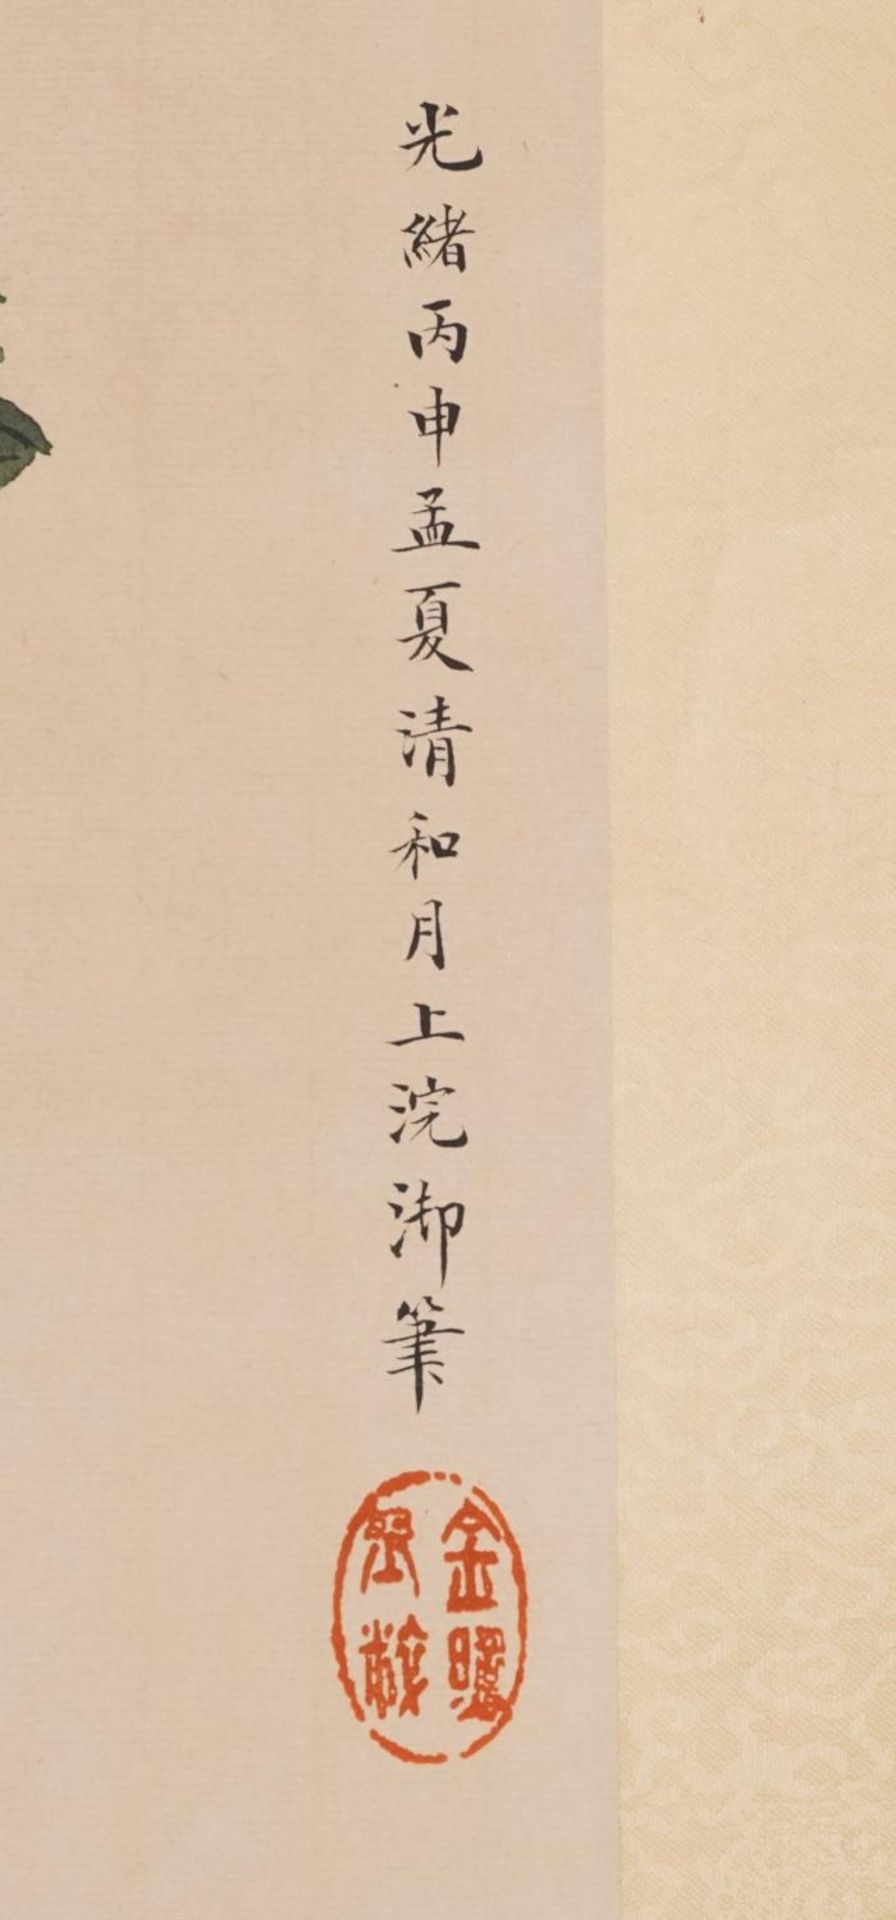 光緒丙申孟夏清和月上浣御筆